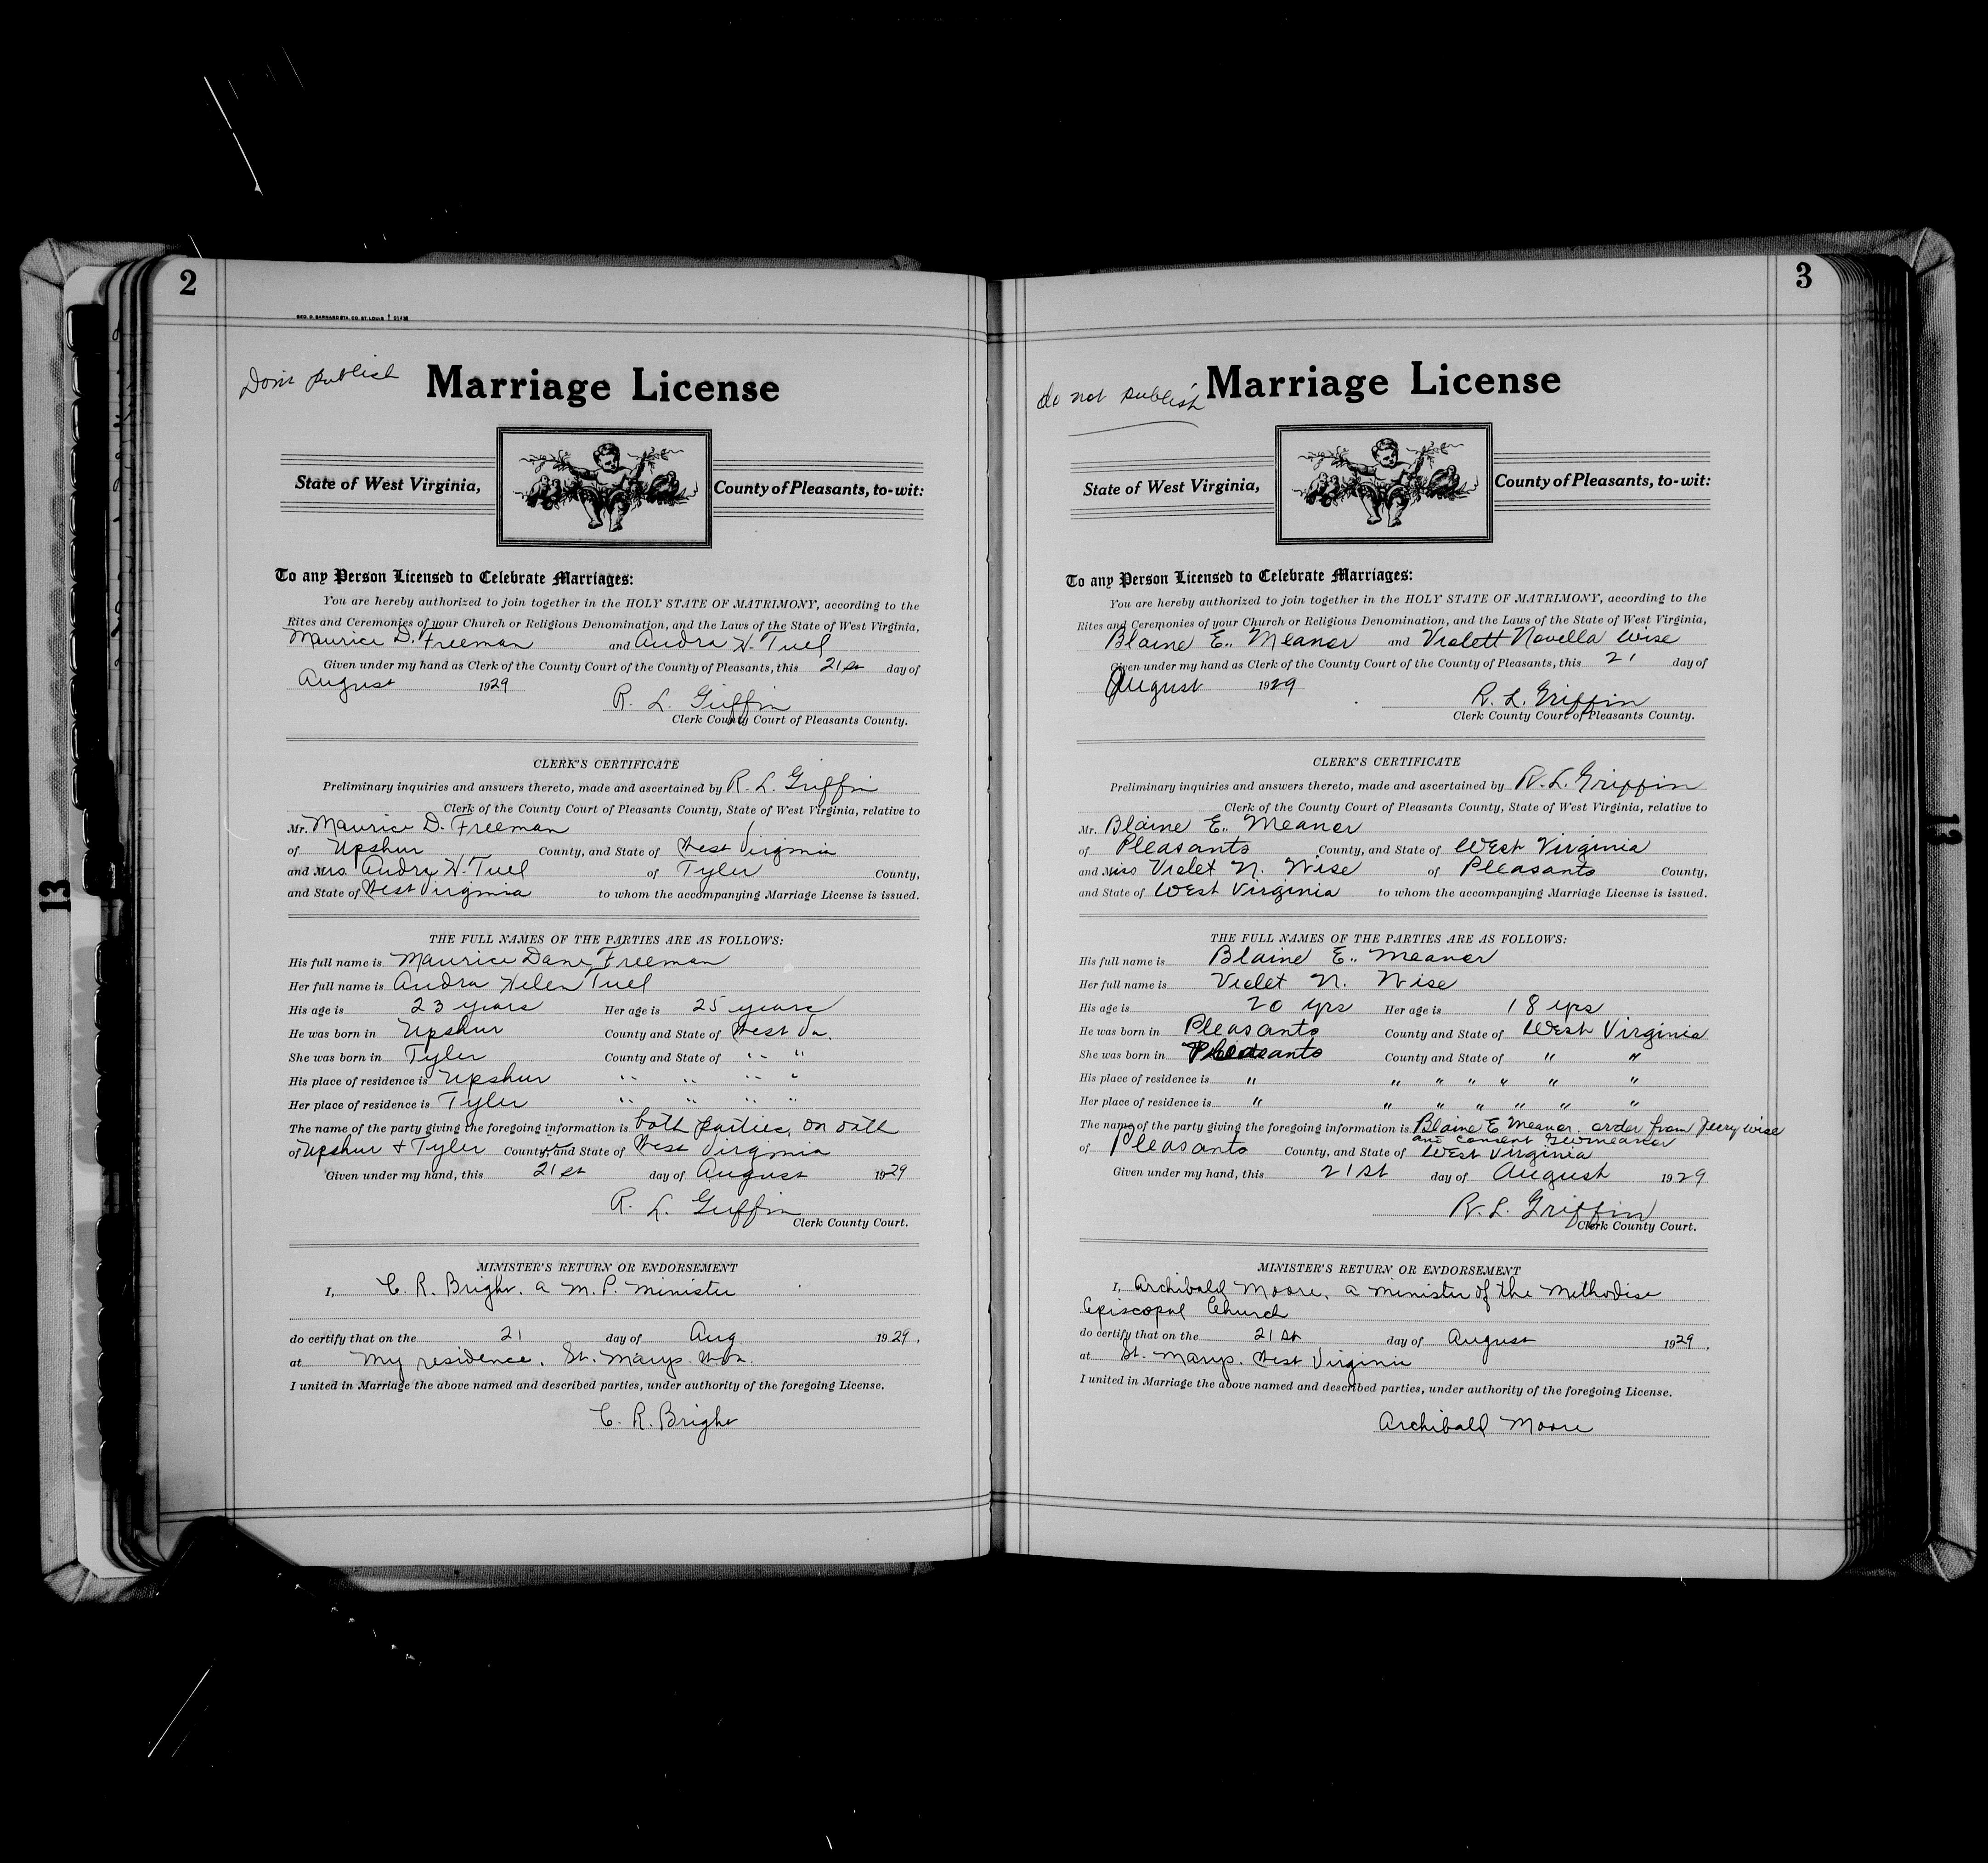 2
GEO. D. BARNARD STA. CO. ST. LOUIS
Don't publish
Marriage License
State of West Virginia, County of Pleasants, to-wit:
To any Person Licensed to Celebrate Marriages:
You are hereby authorized to join together in the HOLY STATE OF MATRIMONY, according to the
Rites and Ceremonies of your Church or Religious Denomination, and the Laws of the State of West Virginia,
Maurice D. Freeman and Audra H. Tuel
Given under my hand as Clerk of the County Court of the County of Pleasants, this 21st day of
August 1929
R. L. Griffin
Clerk County Court of Pleasants County.
CLERK'S CERTIFICATE
Preliminary inquiries and answers thereto, made and ascertained by R. L. Griffin
Clerk of the County Court of Pleasants County, State of West Virginia, relative to
Mr. Maurice D. Freeman
of Upshur County, and State of West Virginia
and Mrs. Audra H. Tuel of Tyler County,
and State of West Virginia to whom the accompanying Marriage License is issued.
THE FULL NAMES OF THE PARTIES ARE AS FOLLOWS:
His full name is Maurice Dane Freeman
Her full name is Audra Helen Tuel
His age is 23 years Her age is 25 years
He was born in Upshur County and State of West Va.
She was born in Tyler County and State of " "
His place of residence is Upshur " " " "
Her place of residence is Tyler " " " "
The name of the party giving the foregoing information is both parties, on oath
of Upshur & Tyler County, and State of West Virginia
Given under my hand, this 21st day of August 1929
R. L. Griffin
Clerk County Court.
MINISTER'S RETURN OR ENDORSEMENT
I, C. R. Bright, a M. P. minister
do certify that on the 21 day of Aug 1929.
at My residence, St. Marys. W.Va.
I united in Marriage the above named and described parties, under authority of the foregoing License.
C. R. Bright
13
3
do not publish
Marriage License
State of West Virginia, County of Pleasants, to-wit:
To any Person Licensed to Celebrate Marriages:
You are hereby authorized to join together in the HOLY STATE OF MATRIMONY, according to the
Rites and Ceremonies of your Church or Religious Denomination, and the Laws of the State of West Virginia,
Blaine E. Meaner and Violett Novella Wise
Given under my hand as Clerk of the County Court of the County of Pleasants, this 21 day of
August 1929
R. L. Griffin
Clerk County Court of Pleasants County.
CLERK'S CERTIFICATE
Preliminary inquiries and answers thereto, made and ascertained by R. L. Griffin
Clerk of the County Court of Pleasants County, State of West Virginia, relative to
Mr. Blaine E. Meaner
of Pleasants County, and State of West Virginia
and Miss Violet N. Wise of Pleasants County,
and State of West Virginia to whom the accompanying Marriage License is issued.
THE FULL NAMES OF THE PARTIES ARE AS FOLLOWS:
His full name is Blaine E. Meaner
Her full name is Violet N. Wise
His age is 20 yrs Her age is 18 yrs
He was born in Pleasants County and State of West Virginia
She was born in Pleasants County and State of " "
His place of residence is " " " " " " "
Her place of residence is " " " " " " "
The name of the party giving the foregoing information is Blaine E Meaner. order from Perry Wise
and consent
of Pleasants County, and State of West Virginia
Given under my hand, this 21st day of August 1929
R. L. Griffin
Clerk County Court.
MINISTER'S RETURN OR ENDORSEMENT
I, Archibald Moore, a minister of the Methodist
Episcopal Church
do certify that on the 21st day of August 1929.
at St. Marys. West Virginia
I united in Marriage the above named and described parties, under authority of the foregoing License.
Archibald Moore
13